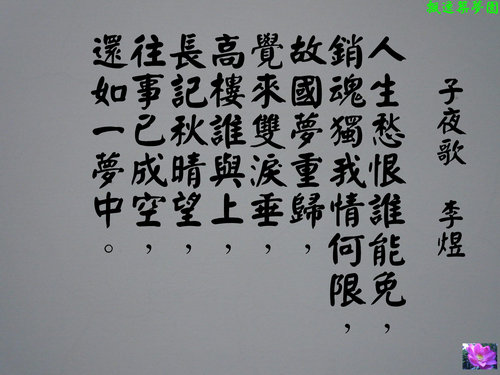 子夜歌 李煜
人生愁恨誰能免，
銷魂獨我情何限，
故國夢重歸，
覺來雙淚垂，
高樓誰與上，
長記秋晴望，
往事已成空，
還如一夢中。